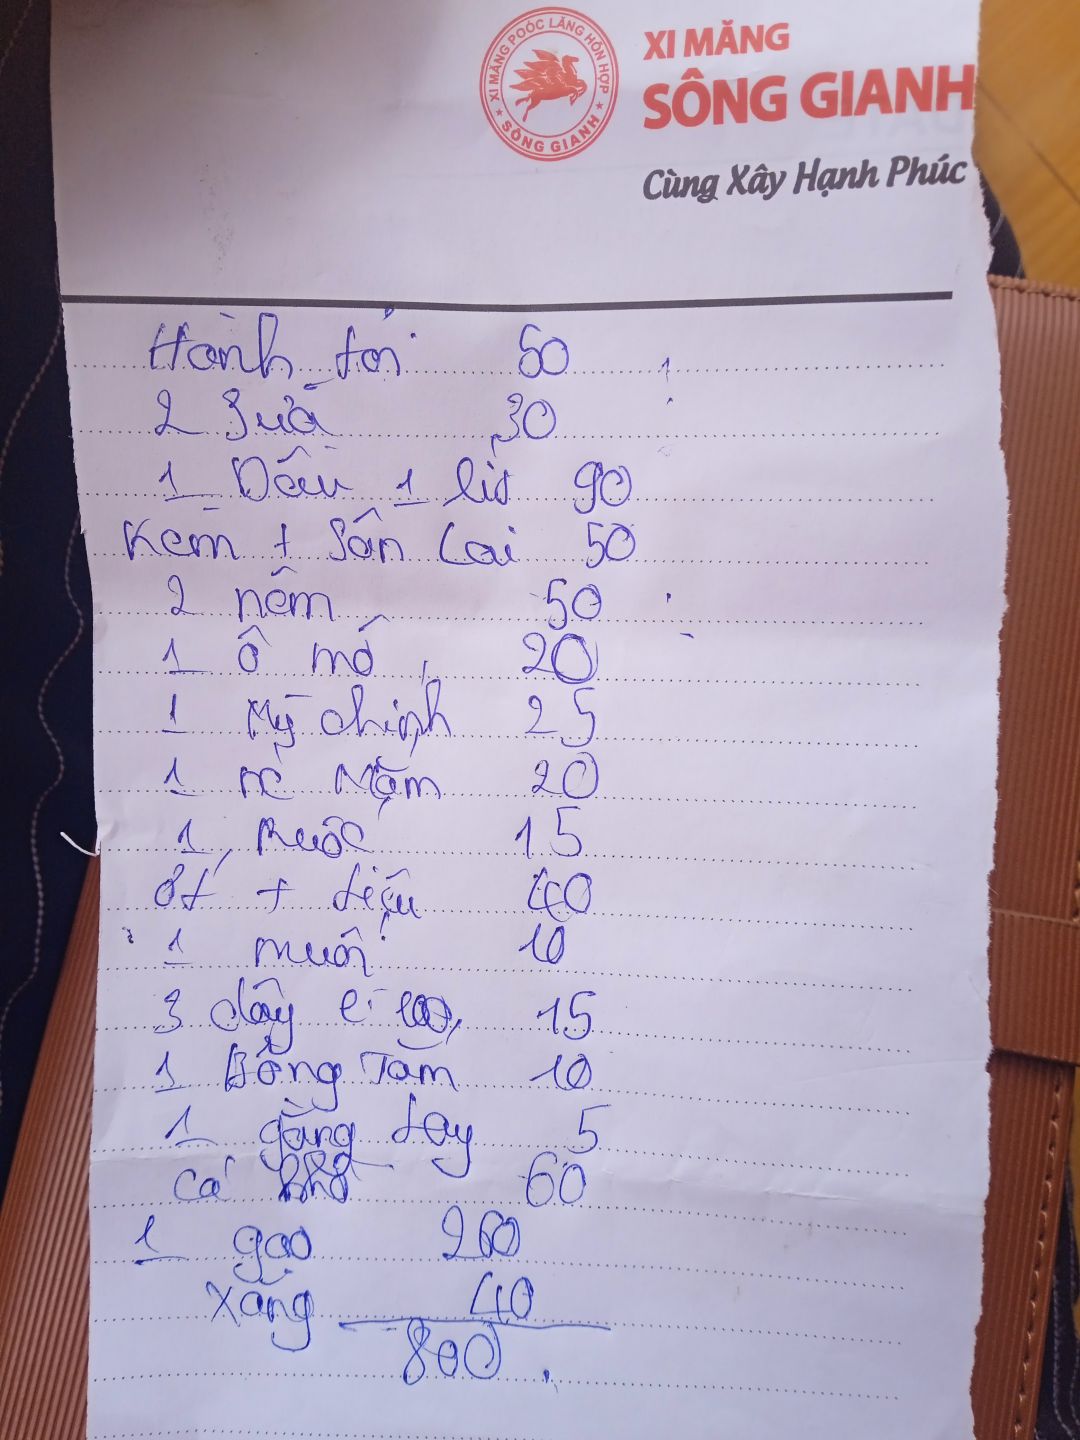 XI MĂNG POÓC LĂNG HỖN HỢP
★ SÔNG GIANH ★
XI MĂNG
SÔNG GIANH
Cùng Xây Hạnh Phúc
Hành tỏi 50
2 sữa 30
1 Dầu 1 lít 90
Kem + Sân Lai 50
2 nêm 50
1 ô mố 20
1 Mỳ chính 25
1 nc Mắm 20
1 Ruốc 15
ớt + tiêu 40
1 muối 10
3 dây 15
1 Bông Tăm 10
1 găng tay 5
Cá khô 60
1 gạo 260
Xăng 40
800